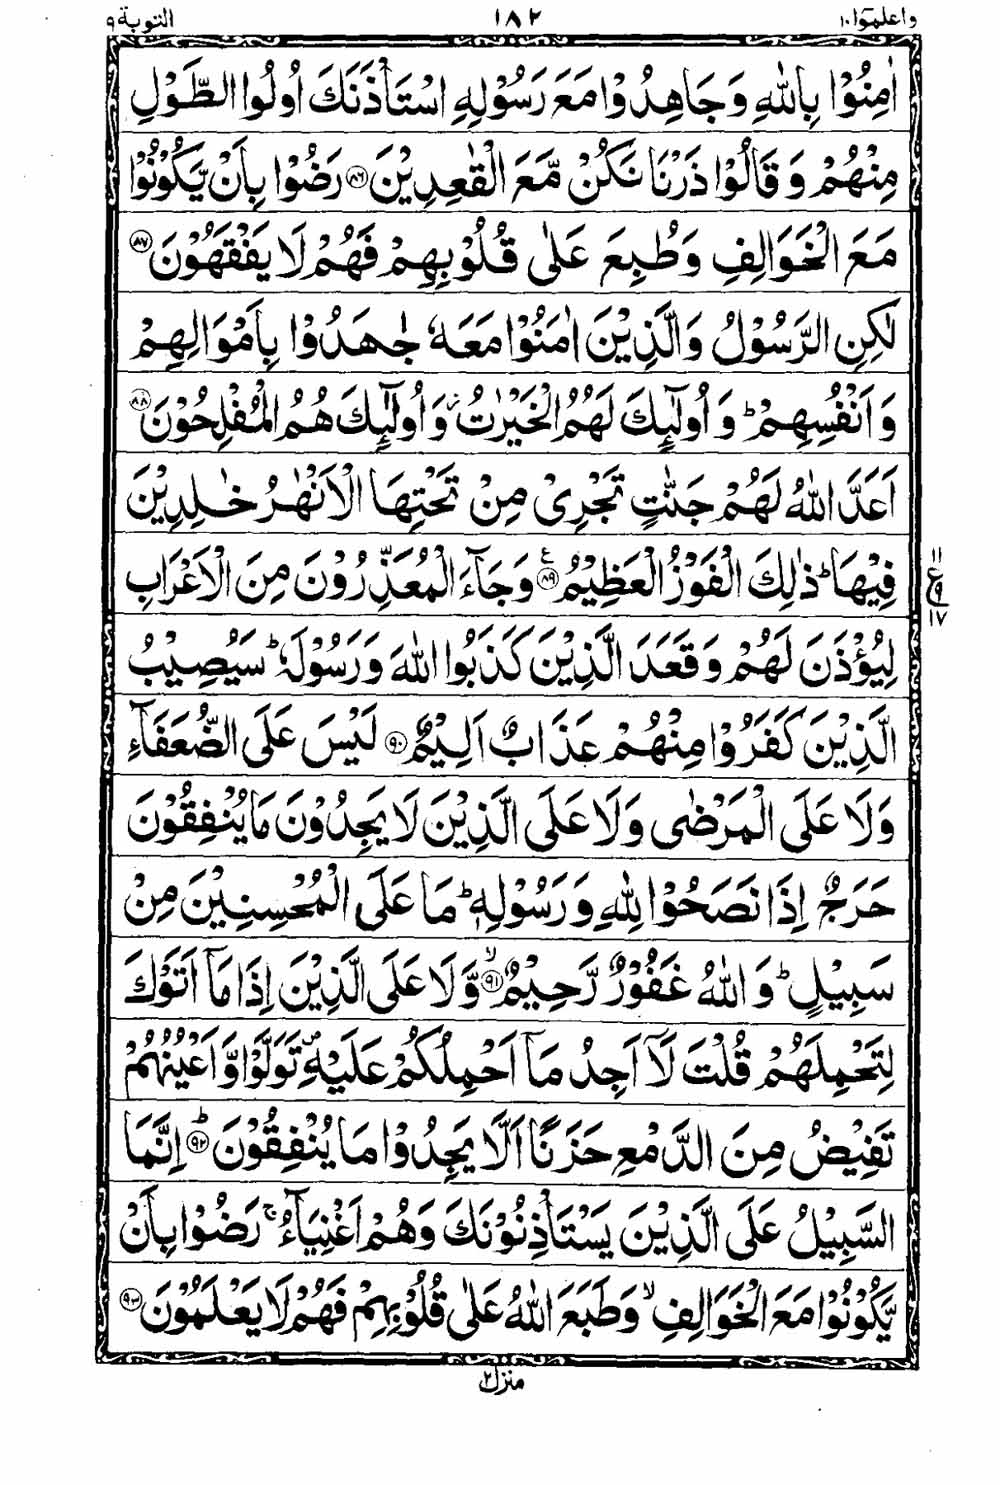 واعلموٓا ١٠ ١٨٢ التوبة ٩
اٰمِنُوْا بِاللّٰهِ وَجَاهِدُوْا مَعَ رَسُوْلِهِ اسْتَاْذَنَكَ اُولُوا الطَّوْلِ
مِنْهُمْ وَقَالُوْا ذَرْنَا نَكُنْ مَّعَ الْقٰعِدِيْنَ ﴿٨٦﴾ رَضُوْا بِاَنْ يَّكُوْنُوْا
مَعَ الْخَوَالِفِ وَطُبِعَ عَلٰى قُلُوْبِهِمْ فَهُمْ لَا يَفْقَهُوْنَ ﴿٨٧﴾
لٰكِنِ الرَّسُوْلُ وَالَّذِيْنَ اٰمَنُوْا مَعَهٗ جٰهَدُوْا بِاَمْوَالِهِمْ
وَاَنْفُسِهِمْ ؕ وَاُولٰٓئِكَ لَهُمُ الْخَيْرٰتُ ؗ وَاُولٰٓئِكَ هُمُ الْمُفْلِحُوْنَ ﴿٨٨﴾
اَعَدَّ اللّٰهُ لَهُمْ جَنّٰتٍ تَجْرِىْ مِنْ تَحْتِهَا الْاَنْهٰرُ خٰلِدِيْنَ
فِيْهَا ؕ ذٰلِكَ الْفَوْزُ الْعَظِيْمُ ﴿٨٩﴾ ع وَجَآءَ الْمُعَذِّرُوْنَ مِنَ الْاَعْرَابِ
١١ ع ٩ ١٧
لِيُؤْذَنَ لَهُمْ وَقَعَدَ الَّذِيْنَ كَذَبُوا اللّٰهَ وَرَسُوْلَهٗ ؕ سَيُصِيْبُ
الَّذِيْنَ كَفَرُوْا مِنْهُمْ عَذَابٌ اَلِيْمٌ ﴿٩٠﴾ لَيْسَ عَلَى الضُّعَفَآءِ
وَلَا عَلَى الْمَرْضٰى وَلَا عَلَى الَّذِيْنَ لَا يَجِدُوْنَ مَا يُنْفِقُوْنَ
حَرَجٌ اِذَا نَصَحُوْا لِلّٰهِ وَرَسُوْلِهٖ ؕ مَا عَلَى الْمُحْسِنِيْنَ مِنْ
سَبِيْلٍ ؕ وَاللّٰهُ غَفُوْرٌ رَّحِيْمٌ ﴿٩١﴾ ۙ وَّلَا عَلَى الَّذِيْنَ اِذَا مَاۤ اَتَوْكَ
لِتَحْمِلَهُمْ قُلْتَ لَاۤ اَجِدُ مَاۤ اَحْمِلُكُمْ عَلَيْهِ ۪ تَوَلَّوْا وَّاَعْيُنُهُمْ
تَفِيْضُ مِنَ الدَّمْعِ حَزَنًا اَلَّا يَجِدُوْا مَا يُنْفِقُوْنَ ﴿٩٢﴾ ؕ اِنَّمَا
السَّبِيْلُ عَلَى الَّذِيْنَ يَسْتَاْذِنُوْنَكَ وَهُمْ اَغْنِيَآءُ ۚ رَضُوْا بِاَنْ
يَّكُوْنُوْا مَعَ الْخَوَالِفِ ۙ وَطَبَعَ اللّٰهُ عَلٰى قُلُوْبِهِمْ فَهُمْ لَا يَعْلَمُوْنَ ﴿٩٣﴾
منزل ٢